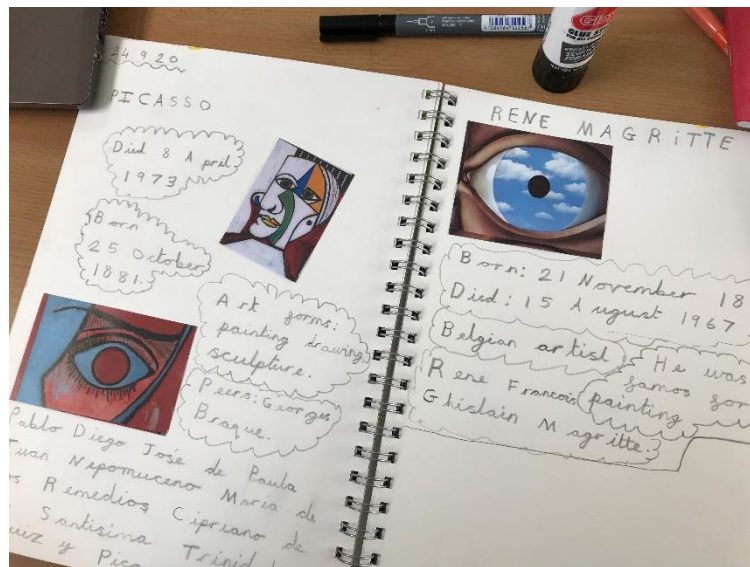 24.9.20
PICASSO
Died 8 April
1973
Born
25 October
1881.
Art forms:
painting drawing
sculpture.
Peers: Georges
Braque.
Pablo Diego José de Paula
Juan Nepomuceno Maria de
os Remedios Cipriano de
Santisima Trinid
uiz y Pica
RENE MAGRiTTE
Born: 21 November 18
Died: 15 August 1967
Belgian artist
He was
famos for
painting
Rene Francois
Ghislain Magritte.
GLUE S